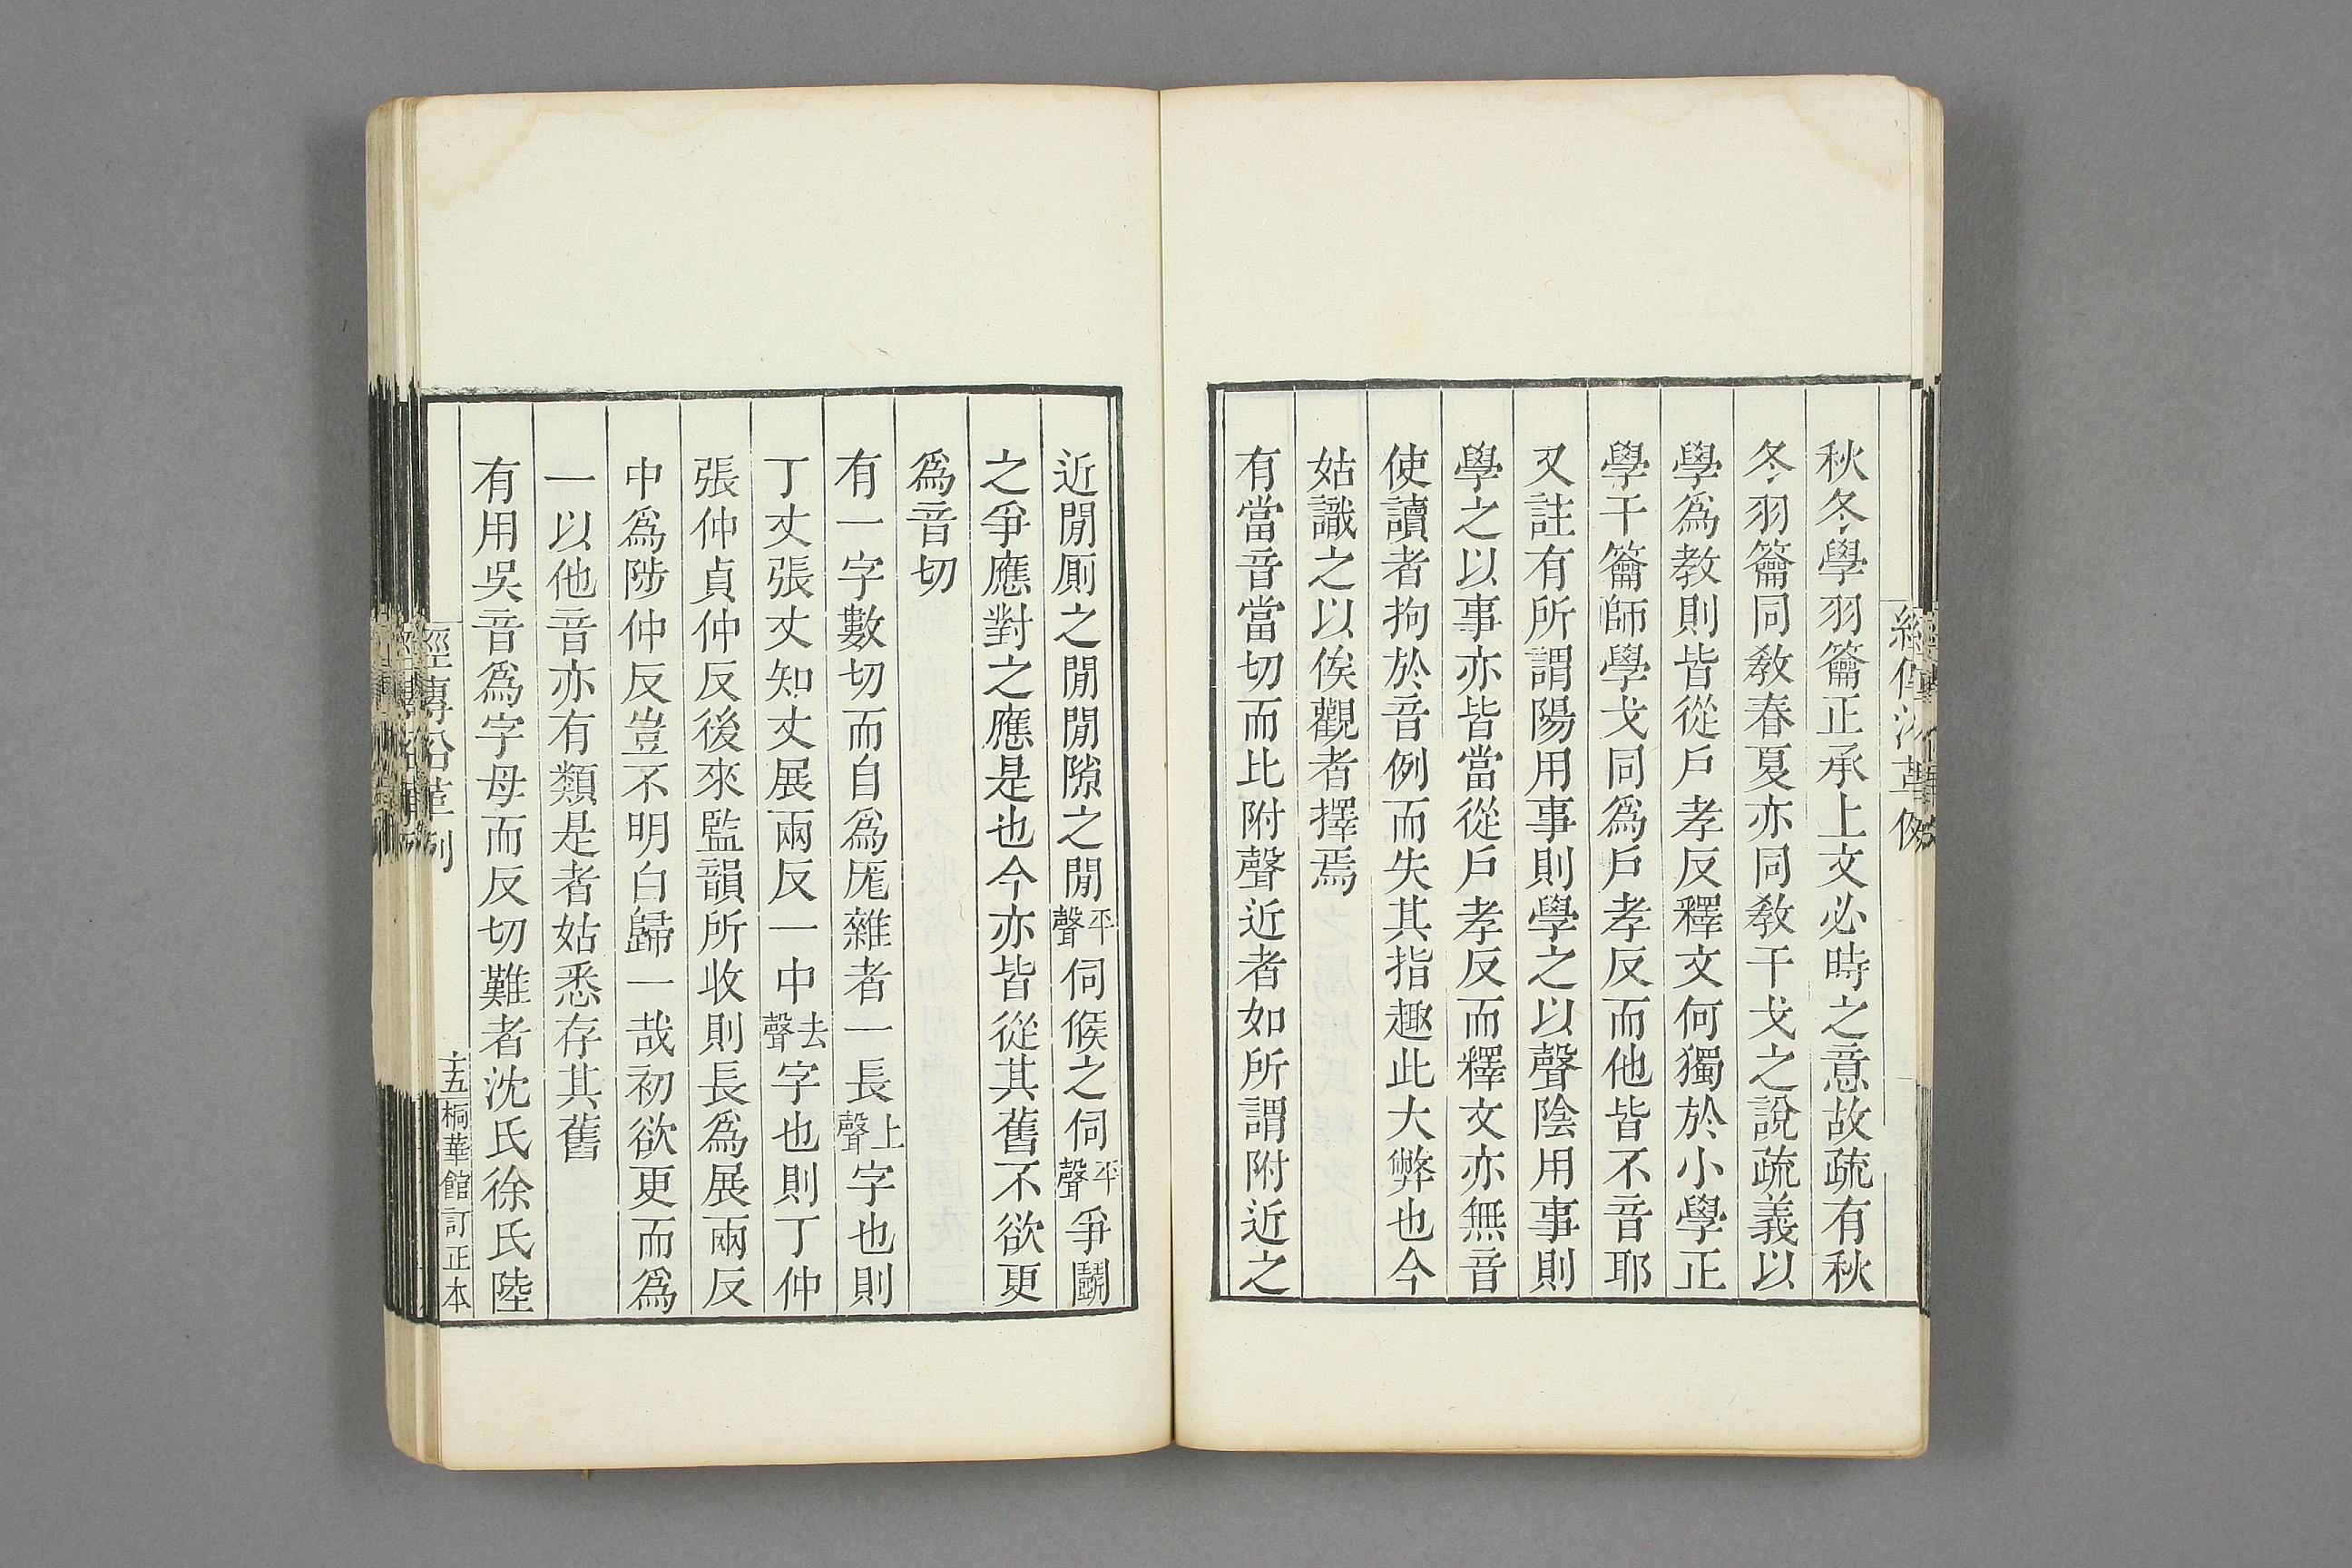 秋冬學羽籥正承上文必時之意故疏有秋
冬羽籥同敎春夏亦同敎干戈之說疏義以
學爲教則皆從戶孝反釋文何獨於小學正
學干籥師學戈同爲戶孝反而他皆不音耶
又註有所謂陽用事則學之以聲陰用事則
學之以事亦皆當從戶孝反而釋文亦無音
使讀者拘於音例而失其指趣此大弊也今
姑識之以俟觀者擇焉
有當音當切而比附聲近者如所謂附近之
近閒厠之閒閒隙之閒平聲伺候之伺平聲爭鬭
之爭應對之應是也今亦皆從其舊不欲更
爲音切
有一字數切而自爲厖雜者一長上聲字也則
丁丈張丈知丈展兩反一中去聲字也則丁仲
張仲貞仲反後來監韻所收則長爲展兩反
中爲陟仲反豈不明白歸一哉初欲更而爲
一以他音亦有類是者姑悉存其舊
有用吳音爲字母而反切難者沈氏徐氏陸
經傳沿革例
十五
桐華館訂正本